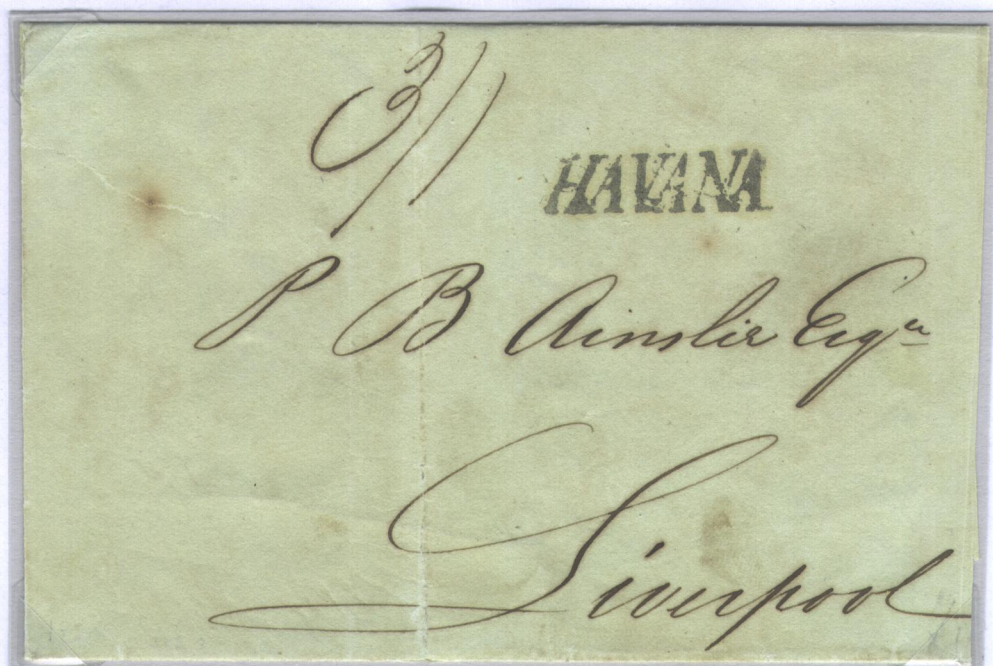 3/1
HAVANA
P B Ainslie Esqre
Liverpool